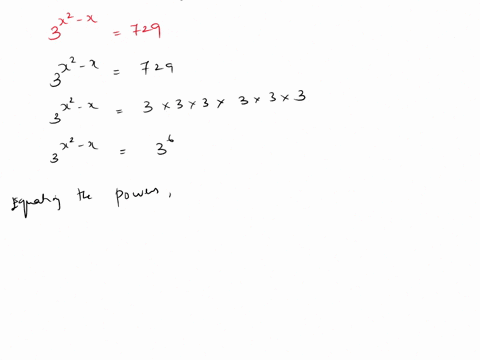 3^{x^2 - x} = 729
3^{x^2 - x} = 729
3^{x^2 - x} = 3 × 3 × 3 × 3 × 3 × 3
3^{x^2 - x} = 3^6
Equating the powers,